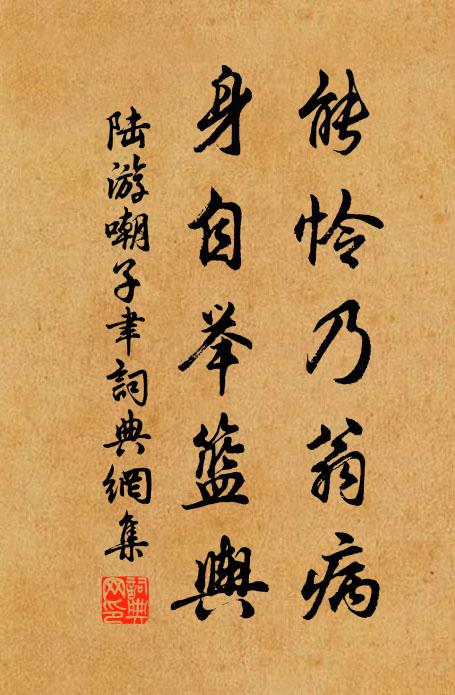 能怜乃翁病
身自举篮舆
陆游嘲子聿词典網集
词典网印